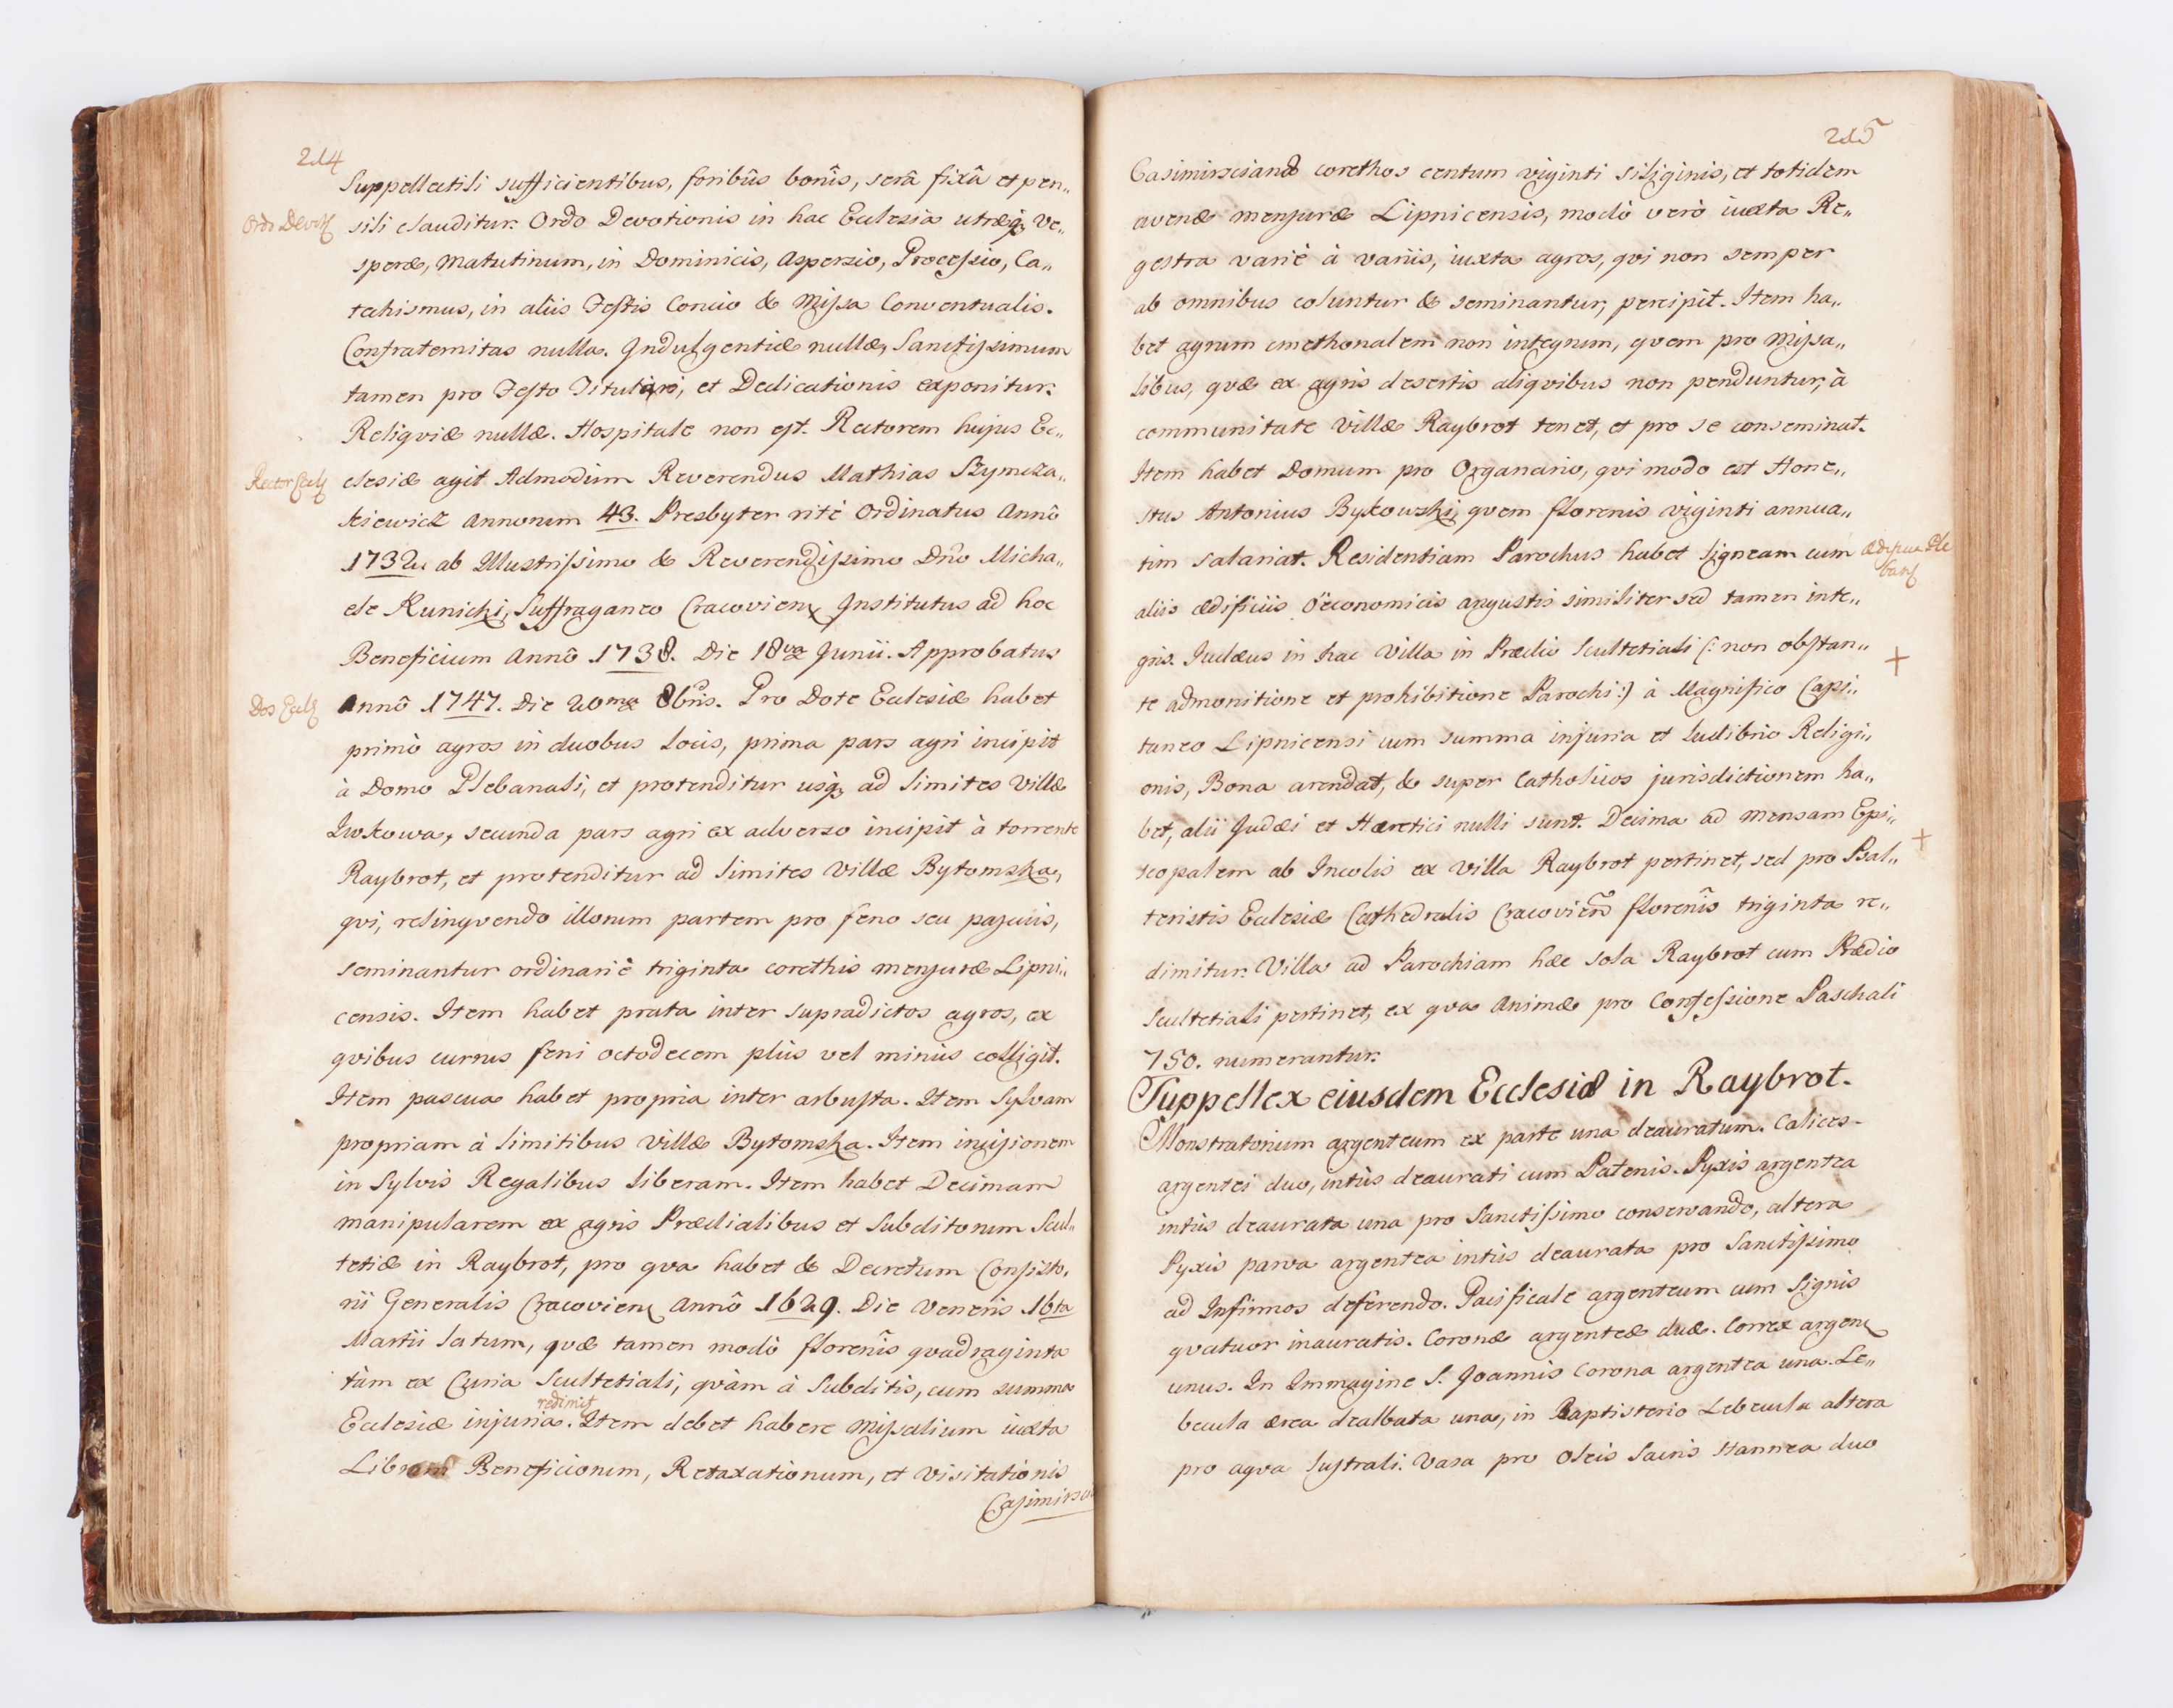 214
Suppellectili sufficientibus, foribûs bonîs, serâ fixâ et pen„
Ordo Devoĩs
sili clauditur. Ordo Devotionis in hac Ecclesia utræq₃ Ve„
speræ, Matutinum, in Dominicis, Asperzio, Procefsio, Ca„
techismus, in aliis Festis Concio & Mifsa Conventualis.
Confraternitas nulla. Indulgentiæ nullæ, Sanctifsimum
tamen pro Festo Titulari, et Dedicationis exponitur.
Reliqviæ nullæ. Hospitale non est. Rectorem hujus Ec„
Rector Eccł
clesiæ agit Admodum Reverendus Mathias Szymcza„
kiewicz Annorum 43. Presbyter ritè Ordinatus Annô
1732. ab Illustrifsimo & Reverendifsimo Dño Micha„
ele Kunicki, Suffraganeo Cracovien Institutus ad hoc
Beneficium Annô 1738. Die 18va Junii. Approbatus
Dos Eccł
Annô 1747. Die 20ma 8bris. Pro Dote Ecclesiæ habet
primò agros in duobus locis, prima pars agri incipit
à Domo Plebanali, et protenditur usq₃ ad limites Villæ
Iwkowa, secunda pars agri ex adverso incipit à torrente
Raybrot, et protenditur ad limites Villæ Bytomska,
qvi, relinqvendo illorum partem pro feno seu pascuis,
seminantur ordinariè triginta corethis mensuræ Lipni„
censis. Item habet prata inter supradictos agros, ex
qvibus currus feni octodecem plùs vel minùs colligit.
Item pascua habet propria inter arbusta. Item Sylvam
propriam à limitibus Villæ Bytomska. Item incisionem
in Sylvis Regalibus liberam. Item habet Decimam
manipularem ex agris Prædialibus et Subditorum Scul„
tetiæ in Raybrot, pro qva habet & Decretum Consisto„
rii Generalis Cracovien Annô 1629. Die Veneris 16ta
Martii latum, qvæ tamen modò florenis qvadraginta
tàm ex Curia Scultetiali, qvàm à Subditis, cum summa
redimit
Ecclesiæ injuria. Item debet habere Mifsalium iuxta
Librum Beneficiorum, Retaxationum, et Visitationis
Casimirsci
215
Casimirscianæ corethos centum viginti siliginis, et totidem
avenæ mensuræ Lipnicensis, modò verò iuxta Re„
gestra variè à variis, iuxta agros, qvi non semper
ab omnibus coluntur & seminantur, percipit. Item ha„
bet agrum cmethonalem non integrum, qvem pro Mifsa„
libus, qvæ ex agris desertis aliqvibus non penduntur, à
communitate Villæ Raybrot tenet, et pro se conseminat.
Item habet Domum pro Organario, qvi modo est Hone„
stus Antonius Bykowski, qvem florenis viginti annua„
tim salariat. Residentiam Parochus habet ligneam cum
Ædificia Ple
banł
aliis ædificiis oeconomicis angustis similiter sed tamen inte„
gris. Judæus in hac Villa in Prædio Scultetiali (: non obstan„
te admonitione et prohibitione Parochi :) à Magnifico Capi„
taneo Lipnicensi cum summa injuria et ludibrio Religi„
onis, Bona arendat, & super Catholicos jurisdictionem ha„
bet, alii Judæi et Hæretici nulli sunt. Decima ad mensam Epi„
scopalem ab Incolis ex Villa Raybrot pertinet, sed pro Psal„
teristis Ecclesiæ Cathedralis Cracovieñ florenis triginta re„
dimitur. Villa ad Parochiam hæc sola Raybrot cum Prædio
Scultetiali pertinet, ex qva Animæ pro Confefsione Paschali
750. numerantur.
Suppellex eiusdem Ecclesiæ in Raybrot.
Monstratorium argenteum ex parte una deauratum. Calices
argentei duo, intùs deaurati cum Patenis. Pyxis argentea
intùs deaurata una pro Sanctifsimo conservando, altera
Pyxis parva argentea intùs deaurata pro Sanctifsimo
ad Infirmos deferendo. Pacificale argenteum cum Lignis
qvatuor inauratis. Coronæ argenteæ duæ. Correx argen
unus. In Immagine S. Joannis Corona argentea una. Le„
becula ærea dealbata una, in Baptisterio Lebecula altera
pro aqva lustrali. Vasa pro Oleis Sacris stannea duo